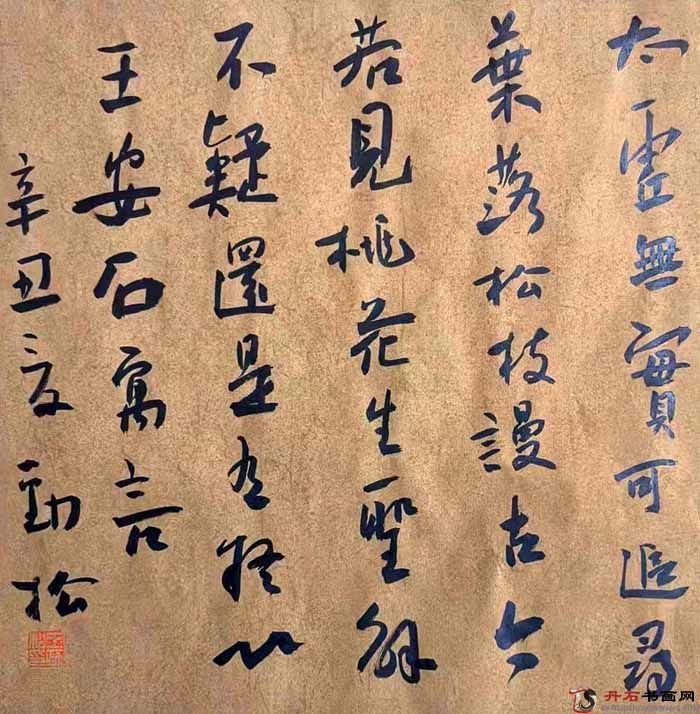 太虛無實可追尋
葉落松枝謾古今
若見桃花生聖解
不疑還是有疑心
王安石寓言
辛丑夏勁松
丹石书画网
DANSHISHUHUAWANG.COM